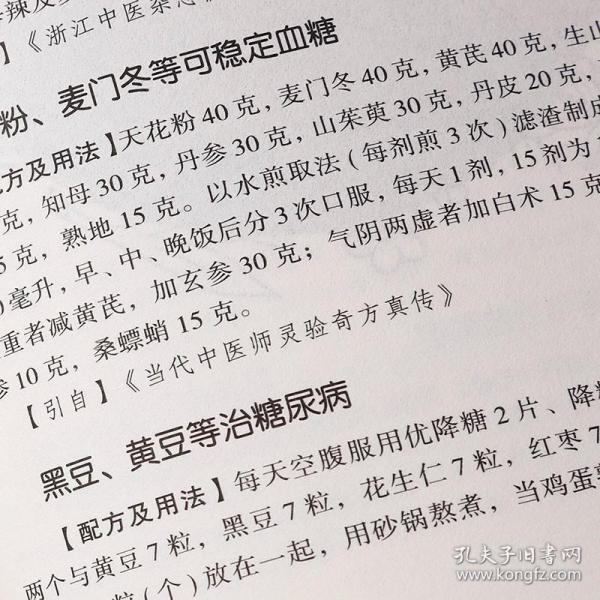 】《浙江中医杂志
粉、麦门冬等可稳定血糖
方及用法】天花粉40克，麦门冬40克，黄芪40克，生山
克，知母30克，丹参30克，山茱萸30克，丹皮20克，
5克，熟地15克。以水煎取法（每剂煎3次）滤渣制成
0毫升，早、中、晚饭后分3次口服，每天1剂，15剂为
重者减黄芪，加玄参30克；气阴两虚者加白术15克
参10克，桑螵蛸15克。
【引自】《当代中医师灵验奇方真传》
黑豆、黄豆等治糖尿病
【配方及用法】每天空腹服用优降糖2片、降糖
两个与黄豆7粒，黑豆7粒，花生仁7粒，红枣7
粒（个）放在一起，用砂锅熬煮，当鸡蛋
孔夫子旧书网
www.kongfz.com